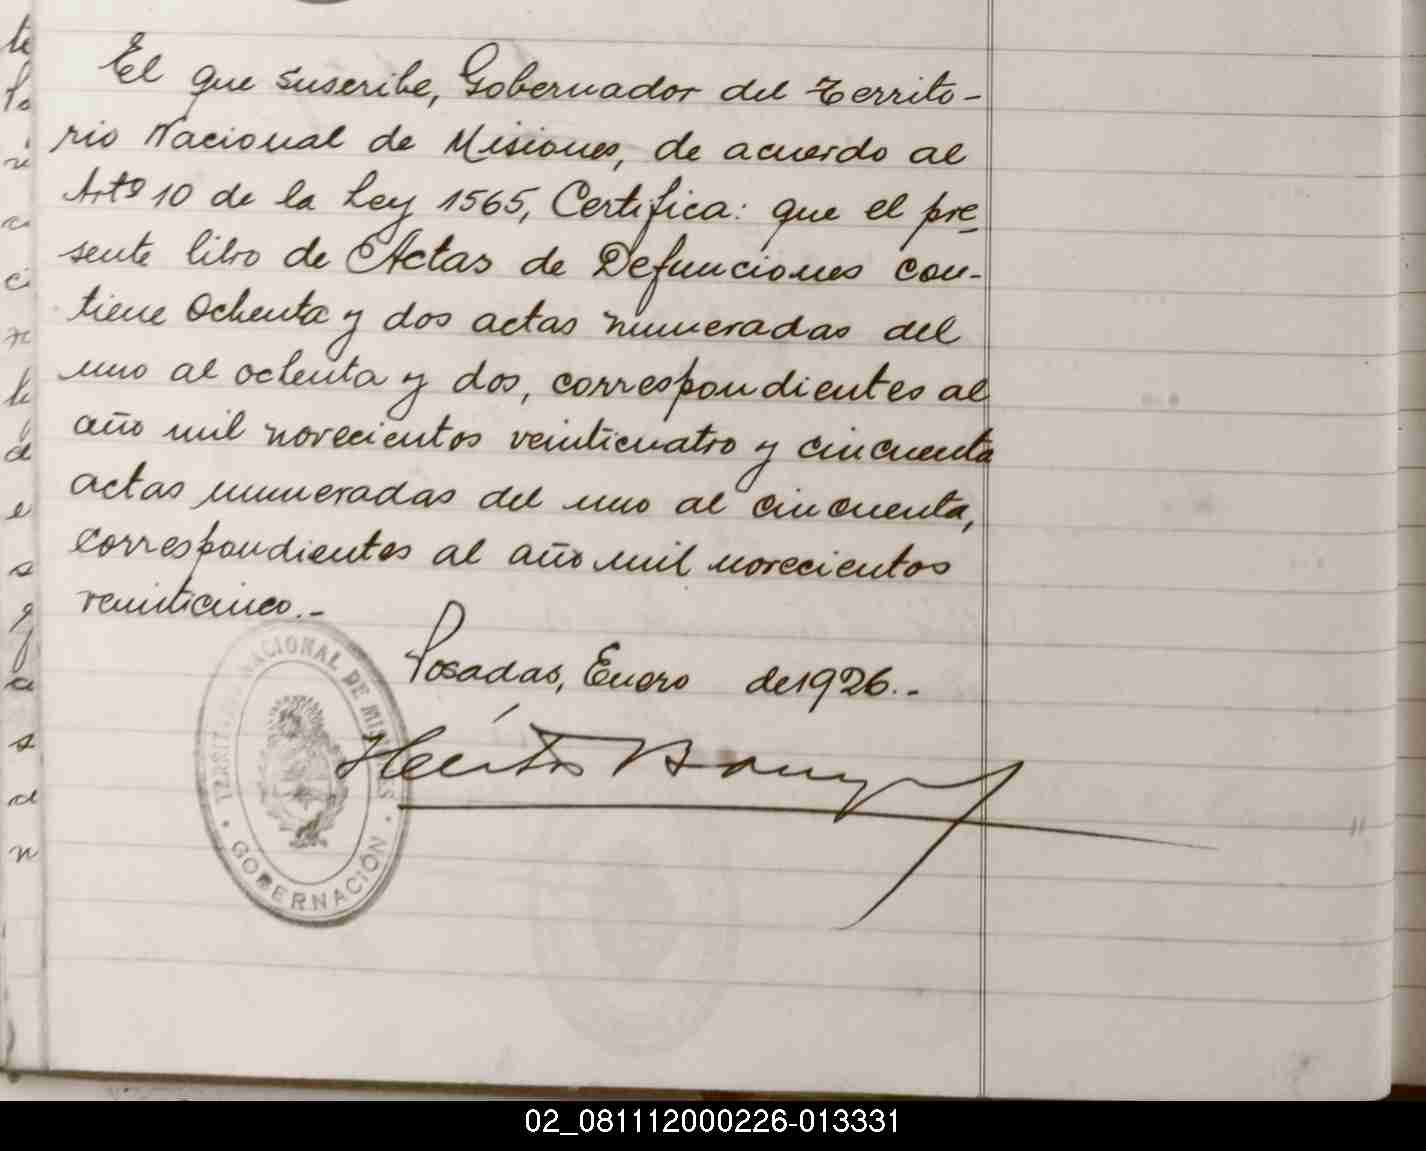 El que suscribe, Gobernador del Territo-
rio Nacional de Misiones, de acuerdo al
Artº 10 de la Ley 1565, Certifica: que el pre-
sente libro de Actas de Defunciones con-
tiene ochenta y dos actas numeradas del
uno al ochenta y dos, correspondientes al
año mil novecientos veinticuatro y cincuenta
actas numeradas del uno al cincuenta,
correspondientes al año mil novecientos
veinticinco.-
Posadas, Enero de 1926.-
Héctor
NACIONAL DE MISIONES
GOBERNACIÓN
02_081112000226-013331